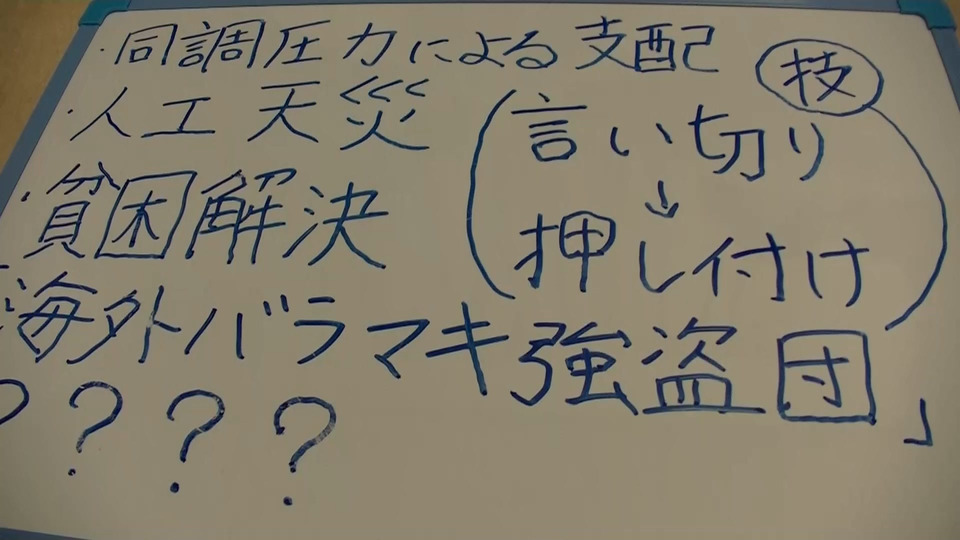 ・同調圧力による支配
・人工天災
・貧困解決
海外バラマキ強盗団」
? ? ? ?
技
(言い切り
↓
押し付け)